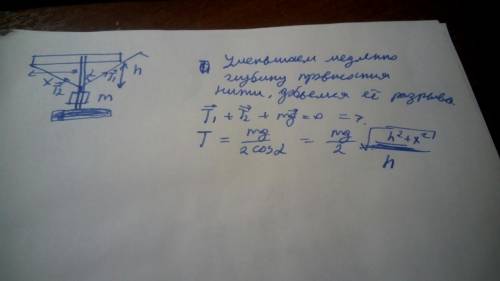 T₁ h
x T₂
m
1) Уменьшаем медленно
глубину провисания
нити, добьемся её разрыва.
T⃗₁ + T⃗₂ + mg⃗ = 0 = >.
T = mg / 2cosα = mg / 2 √h² + x² / h